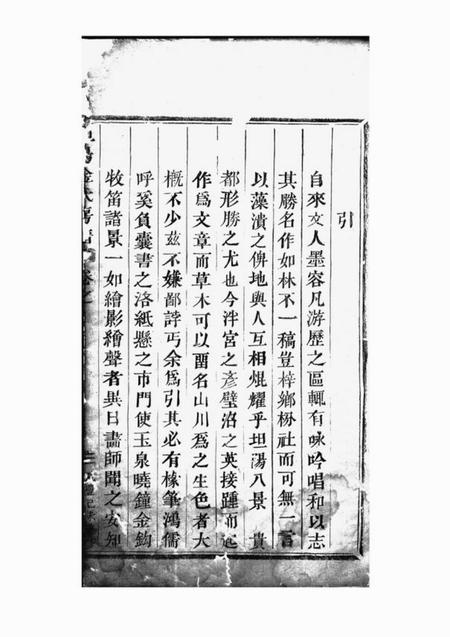 引
自來文人墨容凡游歷之區輒有咏吟唱和以志
其勝名作如林不一稿豈梓鄉枌社而可無一言
以藻潰之俾地與人互相焜耀乎坦湯八景 貴
都形勝之尤也今泮宮之彥璧沼之英接踵而起
作爲文章而草木可以畱名山川爲之生色者大
概不少茲不嫌鄙諄丐余爲引其必有椽筆鴻儒
呼奚負囊書之洛紙懸之市門使玉泉曉鐘金鈎
牧笛諸景一如繪影繪聲者異日畵師聞之安知